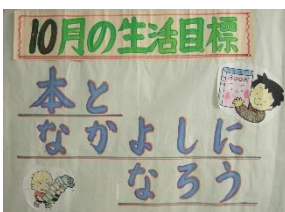 10月の生活目標
本と
なかよしに
なろう
BOOK